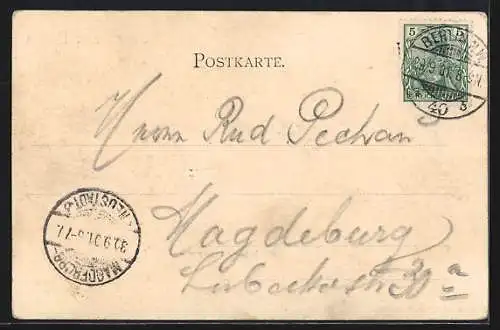 POSTKARTE.
5 5
BERLIN N.W.
40
Herrn Rud Pechan
Magdeburg
Lübeckerstr 30 a
MAGDEBURG-
NEUSTADT
30.9.01.6-7.